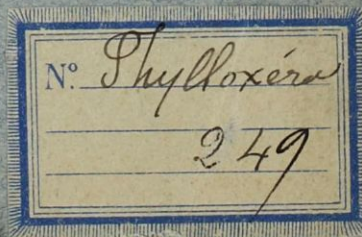 N.º Phylloxéra
249